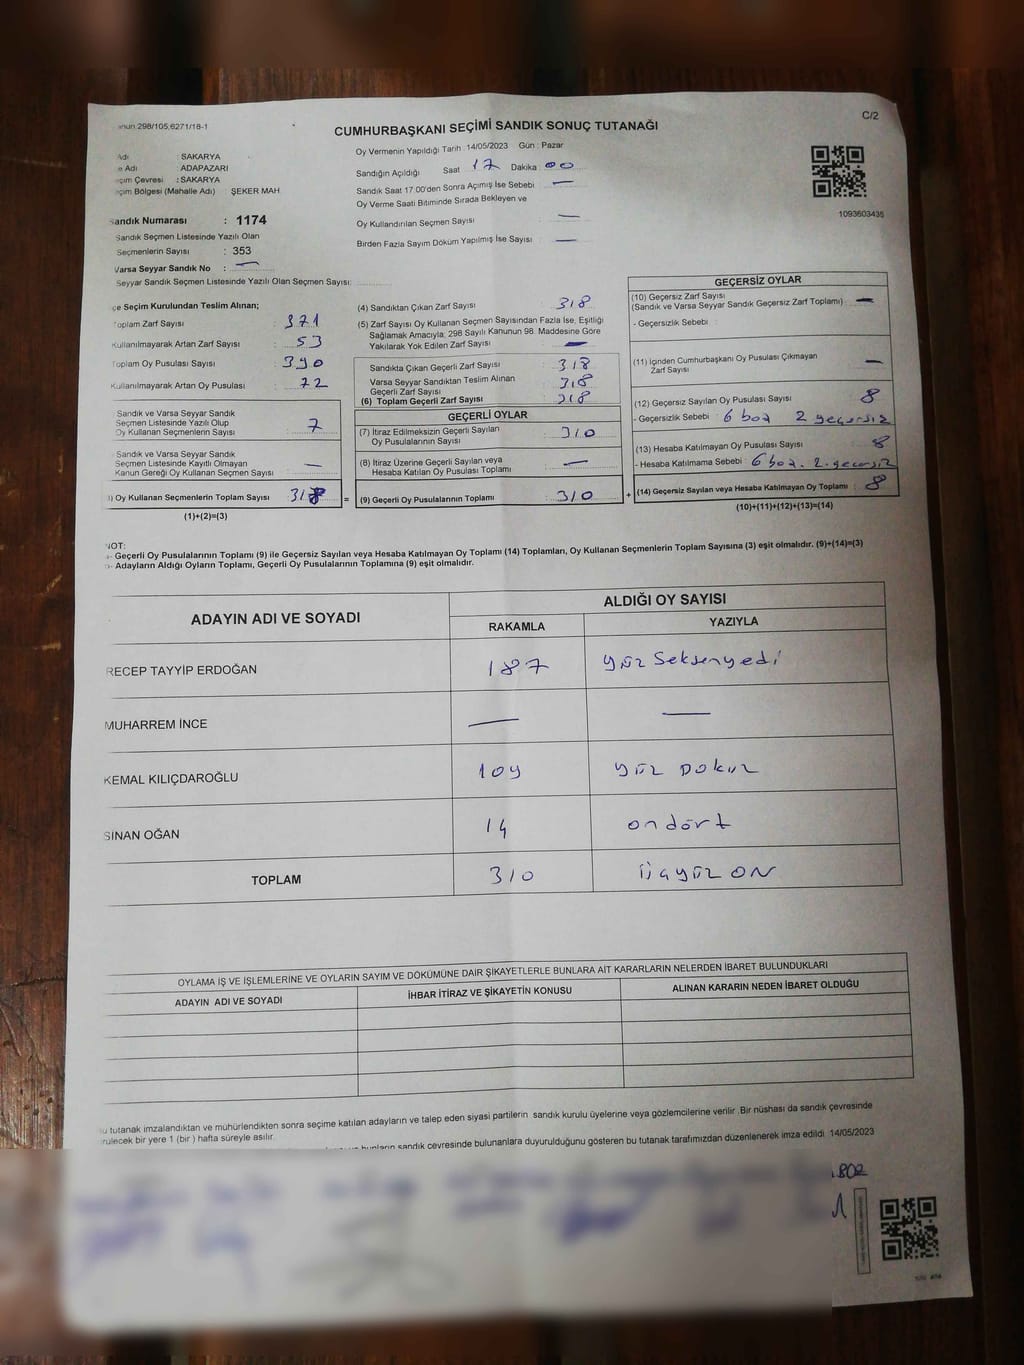 anun:298/105;6271/18-1
C/2
CUMHURBAŞKANI SEÇİMİ SANDIK SONUÇ TUTANAĞI
Adı : SAKARYA
e Adı : ADAPAZARI
çim Çevresi : SAKARYA
çim Bölgesi (Mahalle Adı) : ŞEKER MAH
Sandık Numarası : 1174
Sandık Seçmen Listesinde Yazılı Olan
Seçmenlerin Sayısı : 353
Varsa Seyyar Sandık No : —
Seyyar Sandık Seçmen Listesinde Yazılı Olan Seçmen Sayısı:
Oy Vermenin Yapıldığı Tarih :14/05/2023 Gün : Pazar
Sandığın Açıldığı Saat 17 Dakika 00
Sandık Saat 17:00'den Sonra Açımış İse Sebebi —
Oy Verme Saati Bitiminde Sırada Bekleyen ve
Oy Kullandırılan Seçmen Sayısı —
Birden Fazla Sayım Döküm Yapılmış İse Sayısı —
1093603435
çe Seçim Kurulundan Teslim Alınan;
Toplam Zarf Sayısı : 371
Kullanılmayarak Artan Zarf Sayısı : 53
Toplam Oy Pusulası Sayısı : 390
Kullanılmayarak Artan Oy Pusulası : 72
Sandık ve Varsa Seyyar Sandık
Seçmen Listesinde Yazılı Olup
Oy Kullanan Seçmenlerin Sayısı 7
Sandık ve Varsa Seyyar Sandık
Seçmen Listesinde Kayıtlı Olmayan
Kanun Gereği Oy Kullanan Seçmen Sayısı —
) Oy Kullanan Seçmenlerin Toplam Sayısı 318 =
(1)+(2)=(3)
(4) Sandıktan Çıkan Zarf Sayısı 318
(5) Zarf Sayısı Oy Kullanan Seçmen Sayısından Fazla İse, Eşitliği
Sağlamak Amacıyla; 298 Sayılı Kanunun 98. Maddesine Göre
Yakılarak Yok Edilen Zarf Sayısı —
Sandıkta Çıkan Geçerli Zarf Sayısı 318
Varsa Seyyar Sandıktan Teslim Alınan
Geçerli Zarf Sayısı 318
(6) Toplam Geçerli Zarf Sayısı 318
GEÇERLİ OYLAR
(7) İtiraz Edilmeksizin Geçerli Sayılan
Oy Pusulalarının Sayısı 310
(8) İtiraz Üzerine Geçerli Sayılan veya
Hesaba Katılan Oy Pusulası Toplamı —
(9) Geçerli Oy Pusulalarının Toplamı 310 +
GEÇERSİZ OYLAR
(10) Geçersiz Zarf Sayısı
(Sandık ve Varsa Seyyar Sandık Geçersiz Zarf Toplamı) —
- Geçersizlik Sebebi :
(11) İçinden Cumhurbaşkanı Oy Pusulası Çıkmayan
Zarf Sayısı —
(12) Geçersiz Sayılan Oy Pusulası Sayısı 8
- Geçersizlik Sebebi : 6 boş 2 geçersiz
(13) Hesaba Katılmayan Oy Pusulası Sayısı 8
- Hesaba Katılmama Sebebi : 6 boş. 2 geçersiz
(14) Geçersiz Sayılan veya Hesaba Katılmayan Oy Toplamı : 8
(10)+(11)+(12)+(13)=(14)
NOT:
- Geçerli Oy Pusulalarının Toplamı (9) ile Geçersiz Sayılan veya Hesaba Katılmayan Oy Toplamı (14) Toplamları, Oy Kullanan Seçmenlerin Toplam Sayısına (3) eşit olmalıdır. (9)+(14)=(3)
- Adayların Aldığı Oyların Toplamı, Geçerli Oy Pusulalarının Toplamına (9) eşit olmalıdır.
ADAYIN ADI VE SOYADI
ALDIĞI OY SAYISI
RAKAMLA YAZIYLA
RECEP TAYYİP ERDOĞAN 187 yüz seksenyedi
MUHARREM İNCE — —
KEMAL KILIÇDAROĞLU 109 yüz Dokuz
SİNAN OĞAN 14 on dört
TOPLAM 310 üçyüz ON
OYLAMA İŞ VE İŞLEMLERİNE VE OYLARIN SAYIM VE DÖKÜMÜNE DAİR ŞİKAYETLERLE BUNLARA AİT KARARLARIN NELERDEN İBARET BULUNDUKLARI
ADAYIN ADI VE SOYADI İHBAR İTİRAZ VE ŞİKAYETİN KONUSU ALINAN KARARIN NEDEN İBARET OLDUĞU
u tutanak imzalandıktan ve mühürlendikten sonra seçime katılan adayların ve talep eden siyasi partilerin sandık kurulu üyelerine veya gözlemcilerine verilir .Bir nüshası da sandık çevresinde
rülecek bir yere 1 (bir ) hafta süreyle asılır.
bunların sandık çevresinde bulunanlara duyurulduğunu gösteren bu tutanak tarafımızdan düzenlenerek imza edildi. 14/05/2023
802